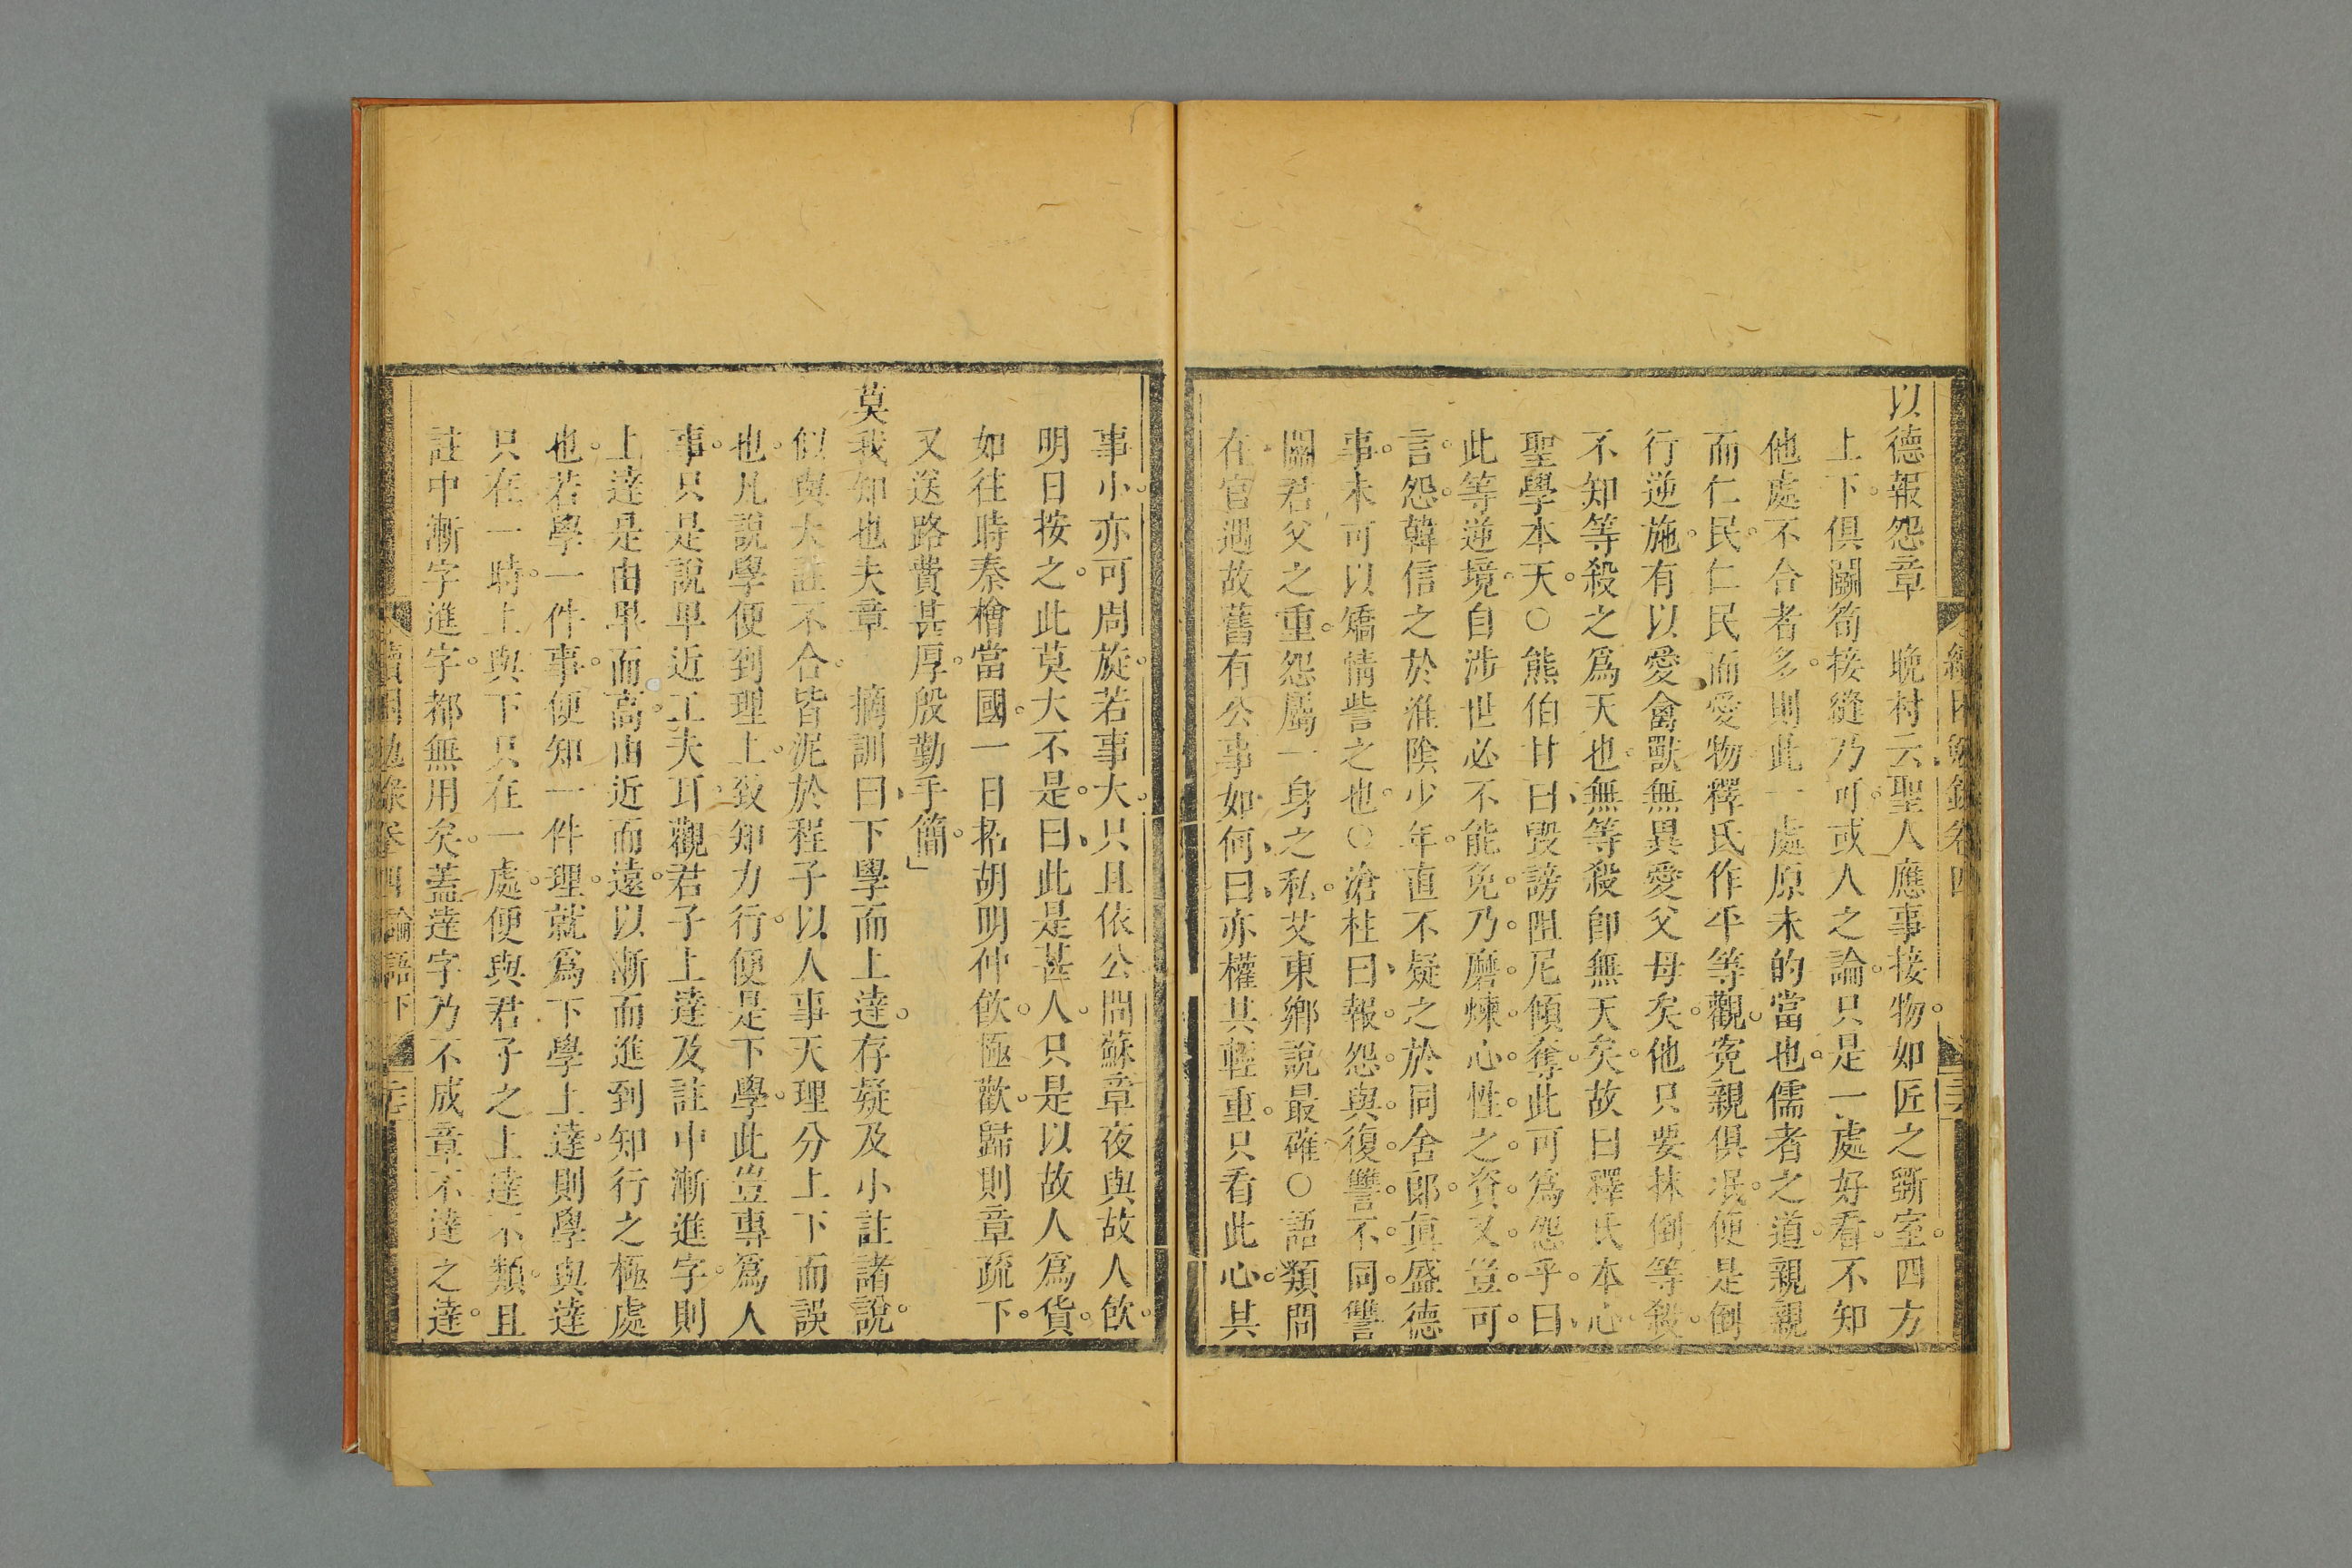 續困勉錄卷四
以德報怨章　晚村云聖人應事接物如匠之斲室四方
上下俱鬬筍接縫乃可或人之論只是一處好看不知
他處不合者多則此一處原未的當也儒者之道親親
而仁民仁民而愛物釋氏作平等觀寃親俱泯便是倒
行逆施有以愛禽獸無異愛父母矣他只要抹倒等殺
不知等殺之爲天也無等殺卽無天矣故曰釋氏本心
聖學本天○熊伯甘曰毀謗阻尼傾奪此可爲怨乎曰
此等逆境自涉世必不能免乃磨煉心性之資又豈可
言怨韓信之於淮陰少年直不疑之於同舍郎眞盛德
事未可以矯情訾之也○滄柱曰報怨與復讐不同讐
關君父之重怨屬一身之私艾東鄉說最確○語類問
在官遇故舊有公事如何曰亦權其輕重只看此心其
事小亦可周旋若事大只且依公問蘇章夜與故人飲
明日按之此莫大不是曰此是甚人只是以故人爲貨
如往時秦檜當國一日招胡明仲飲極歡歸則章疏下
又送路費甚厚殷勤手簡」
莫我知也夫章　摘訓曰下學而上達存疑及小註諸說
似與大註不合皆泥於程子以人事天理分上下而誤
也凡說學便到理上致知力行便是下學此豈專爲人
事只是說卑近工夫耳觀君子上達及註中漸進字則
上達是由卑而高由近而遠以漸而進到知行之極處
也若學一件事便知一件理就爲下學上達則學與達
只在一時上與下只在一處便與君子之上達不類且
註中漸字進字都無用矣蓋達字乃不成章不達之達
續困勉錄卷四論語下